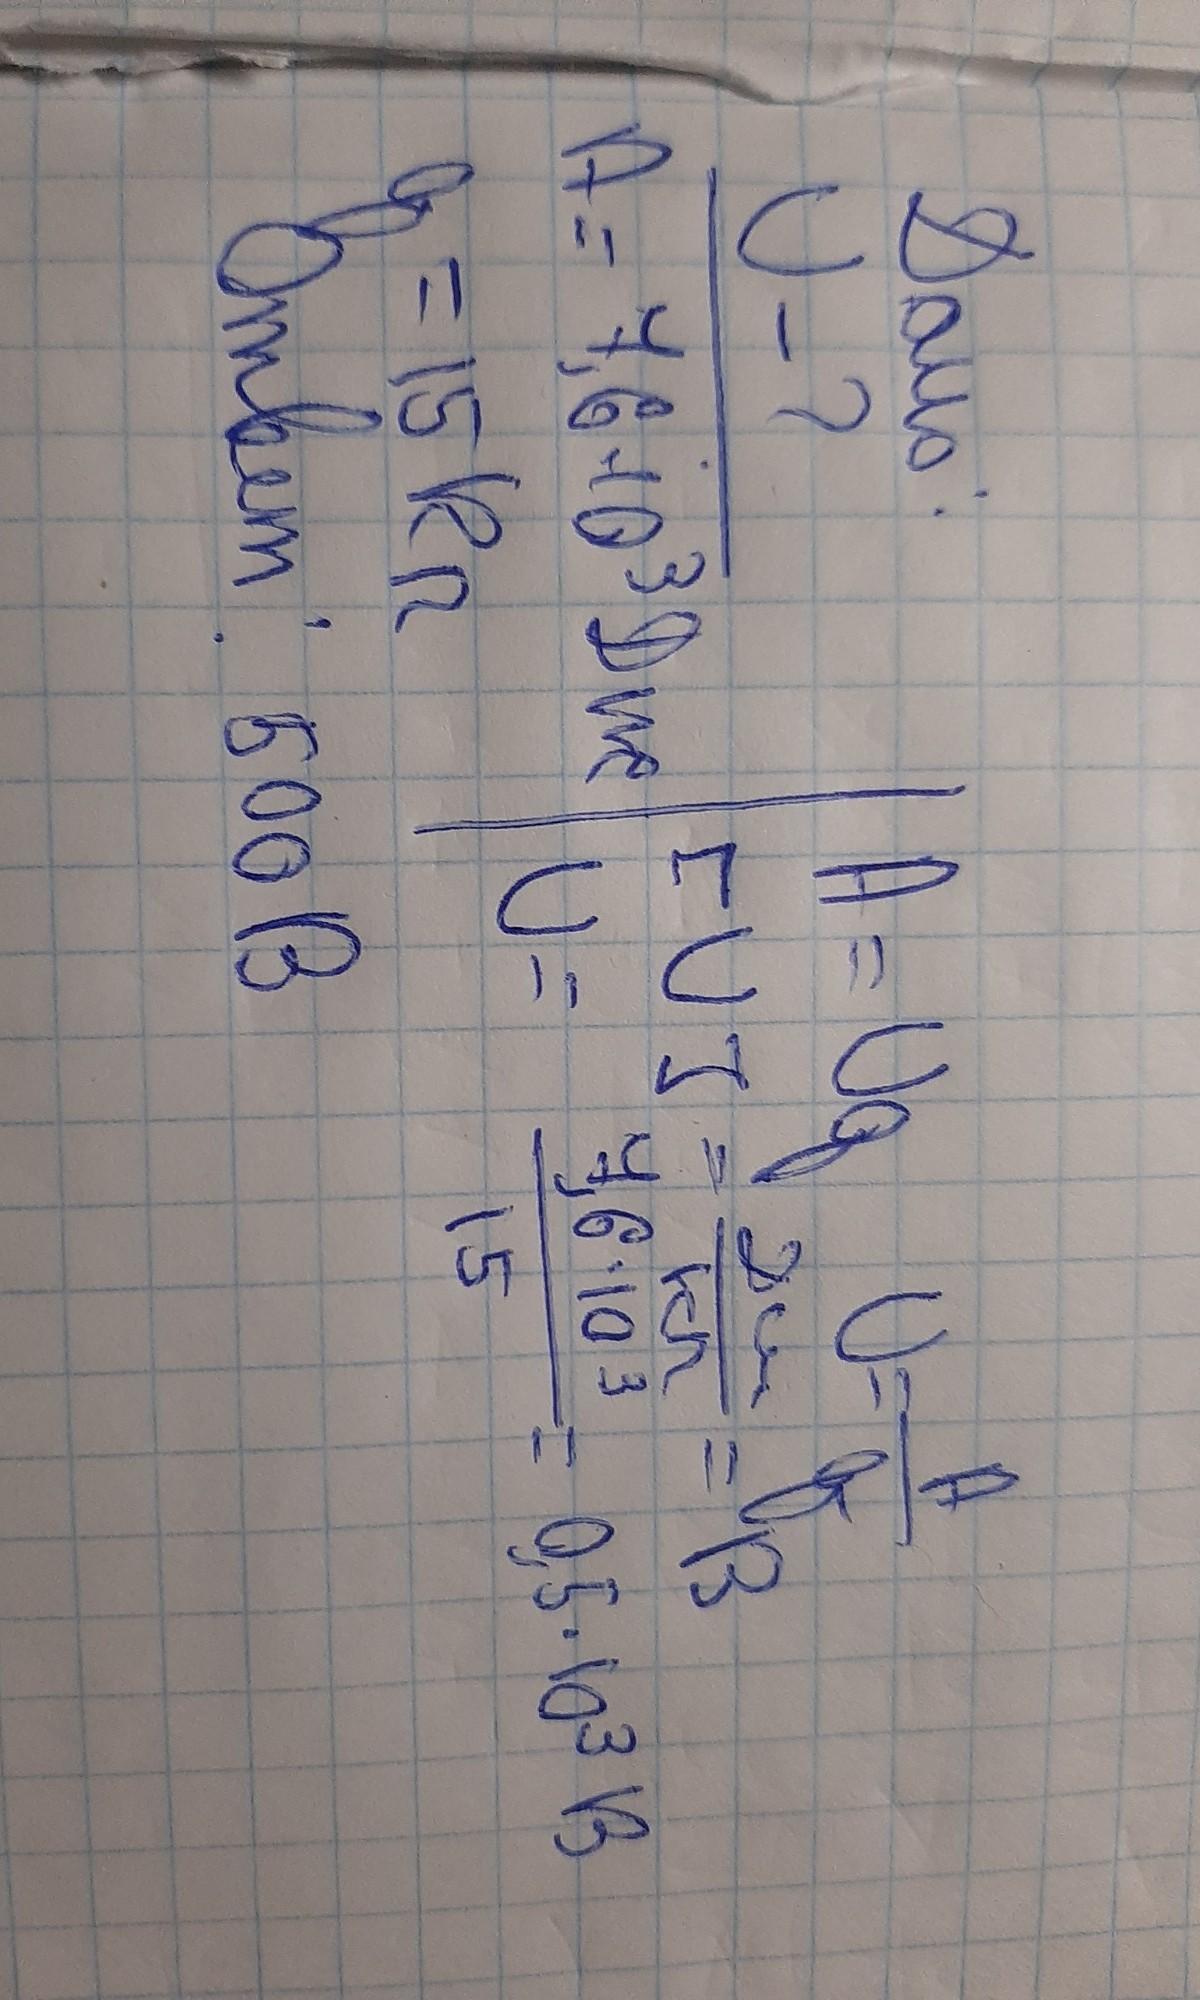 Дано:
U - ?
A = 7,6·10³ Дж
q = 15 Кл
A = Uq U = A/q
[U] = Дж/Кл = В
U = 7,6·10³/15 = 0,5·10³ В
Ответ: 500 В